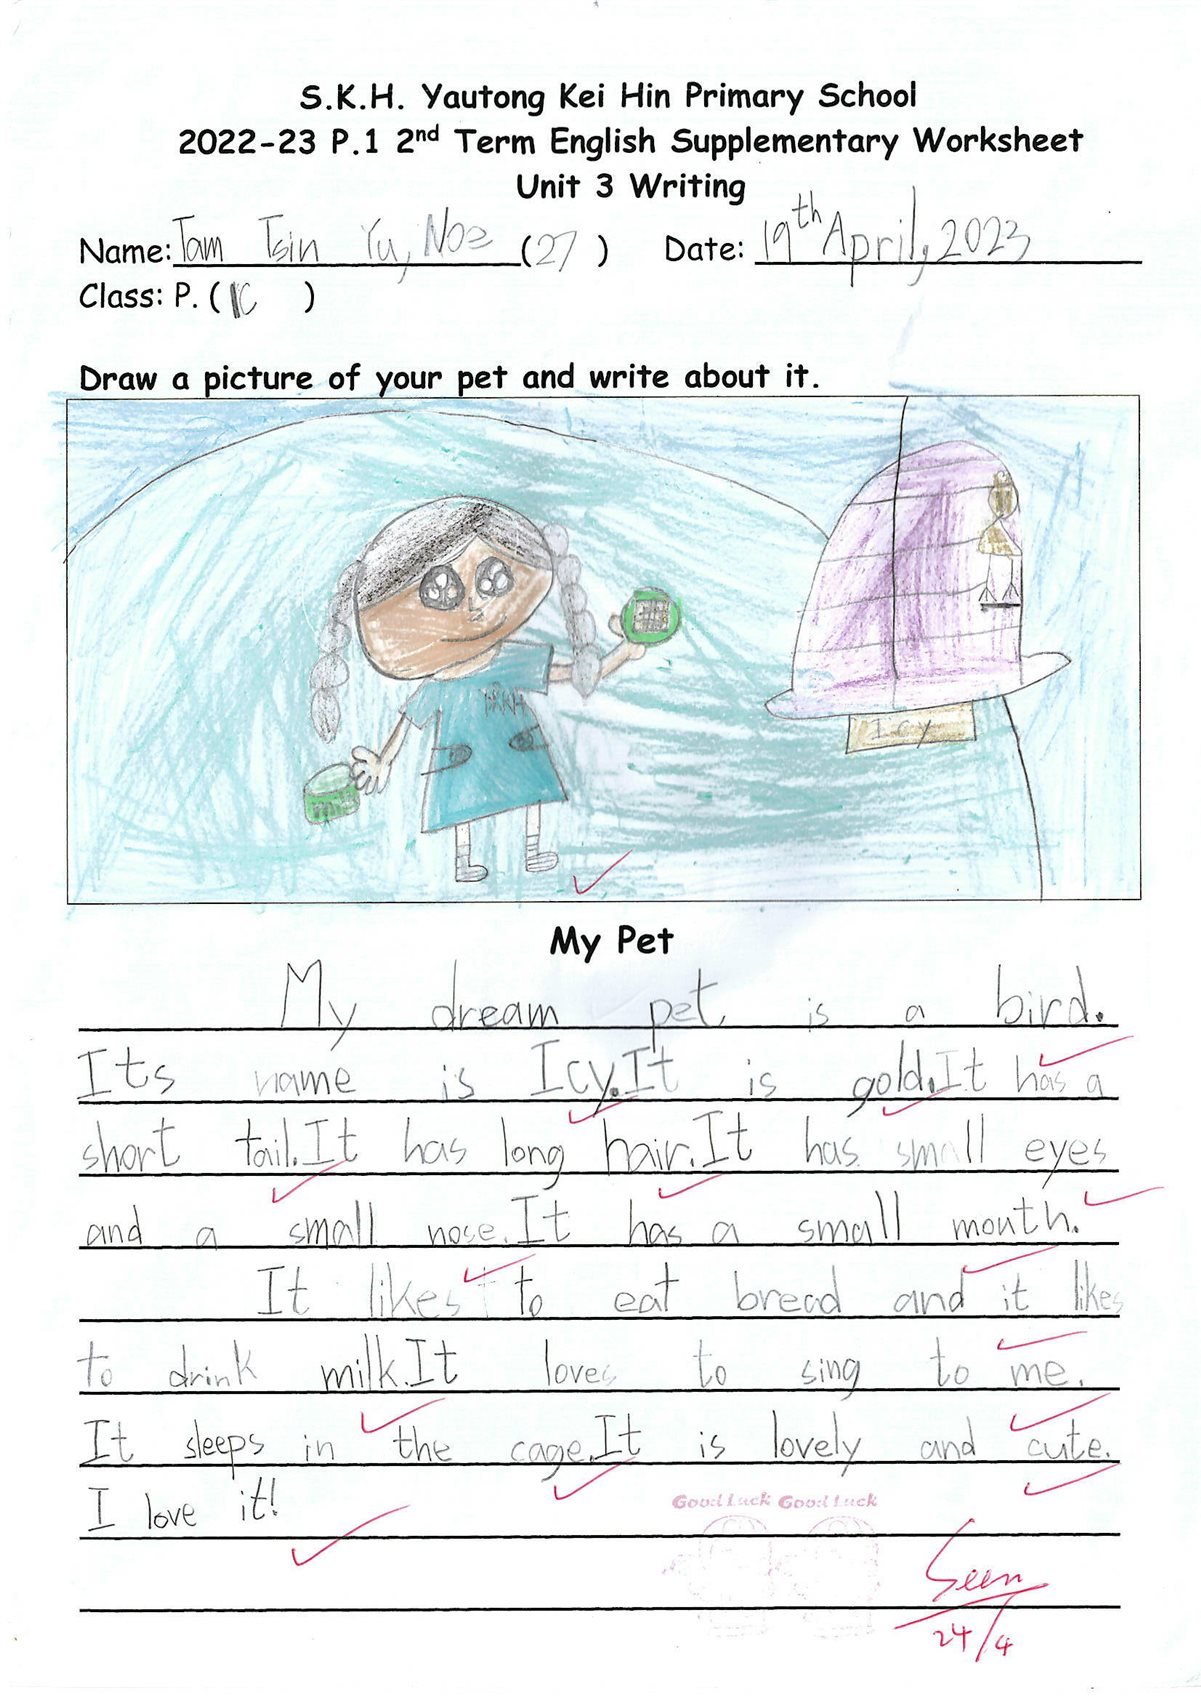 S.K.H. Yautong Kei Hin Primary School
2022-23 P.1 2nd Term English Supplementary Worksheet
Unit 3 Writing
Name: Tam Tsin Yu, Noe (27) Date: 19th April, 2023
Class: P. (1C)
Draw a picture of your pet and write about it.
Icy
My Pet
My dream pet is a bird.
Its name is Icy. It is gold. It has a
short tail. It has long hair. It has small eyes
and a small nose. It has a small mouth.
It likes to eat bread and it likes
to drink milk. It loves to sing to me.
It sleeps in the cage. It is lovely and cute.
I love it!
Good Luck Good Luck
Seen
24/4